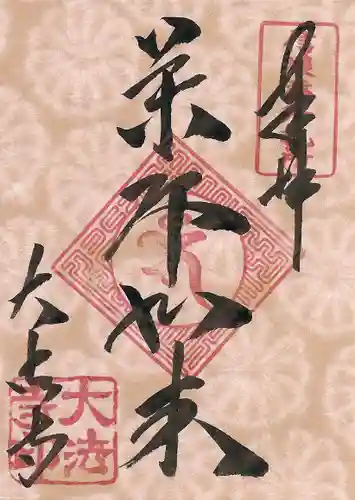 奉拝
薬師如来
大法寺
大法
寺印